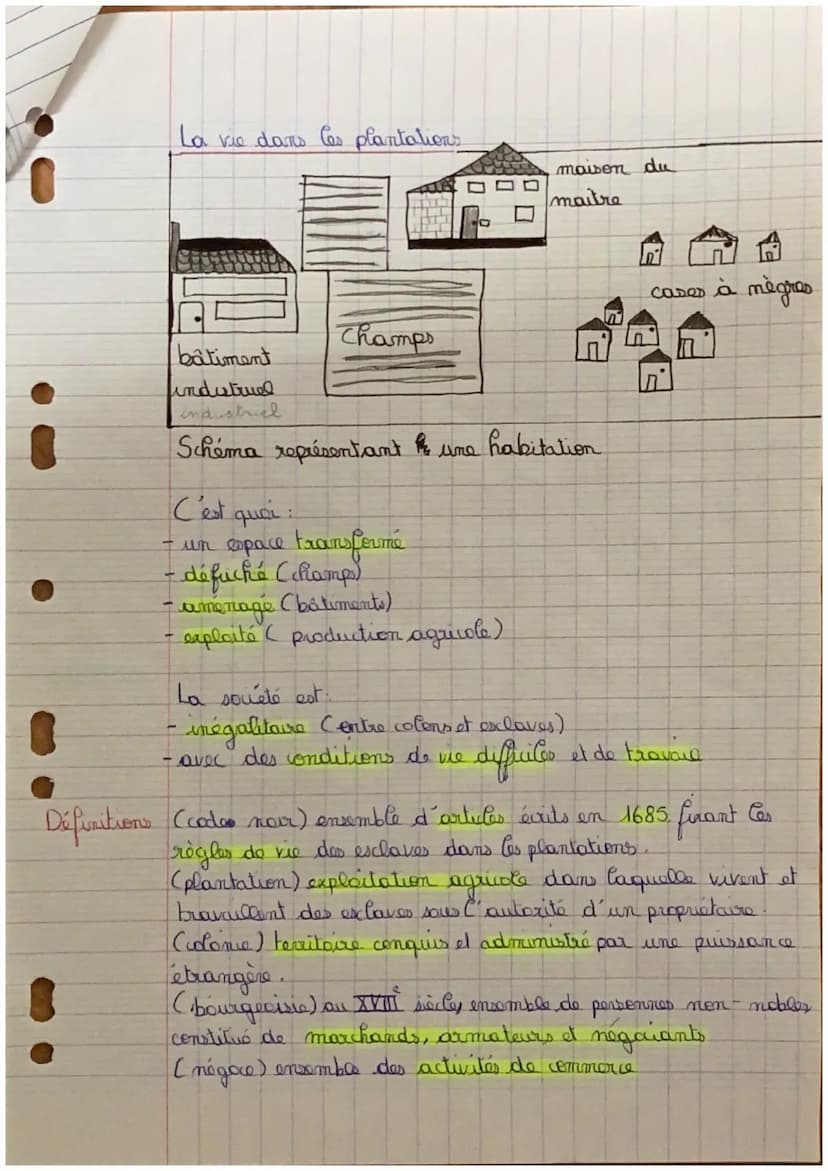 La vie dans les plantations
maison du
maître
cases à nègres
Champs
bâtiment
industruel
industriel
Schéma représentant une habitation
C'est quoi :
- un espace transformé
- défriché (champs)
- aménagé (bâtiments)
- exploité ( production agricole)
La société est:
- inégalitaire (entre colons et esclaves)
- avec des conditions de vie difficiles et de travail
Définitions (code noir) ensemble d'articles écrits en 1685 fixant les
règles de vie des esclaves dans les plantations.
(plantation) exploitation agricole dans laquelle vivent et
travaillent des esclaves sous l'autorité d'un propriétaire.
(colonie) territoire conquis et administré par une puissance
étrangère.
(bourgeoisie) au XVIIIè siècle, ensemble de personnes non-nobles
constitué de marchands, armateurs et négociants
(négoce) ensemble des activités de commerce